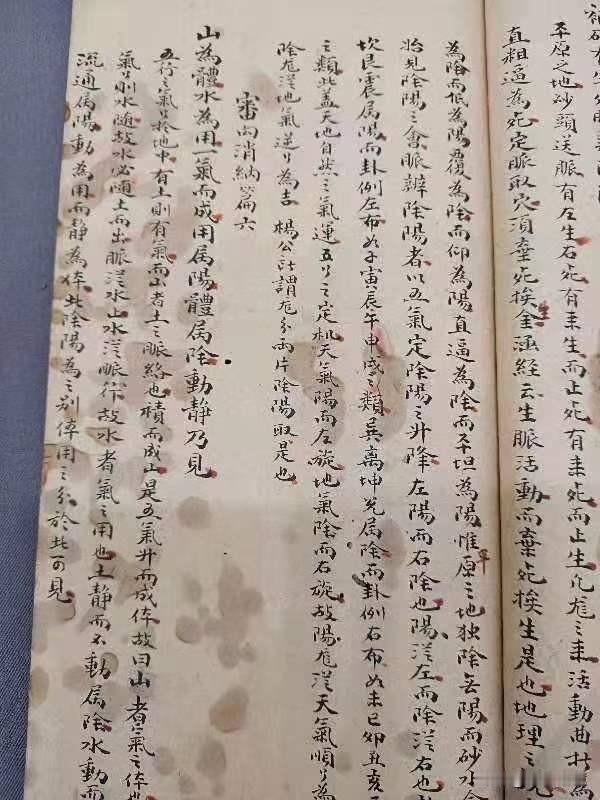 平原之地砂頭送脈有左生右死有來生而止死有來死而止生凡龙之來活動曲折為
直粗逼為死定脈取穴須棄死挨金函經云生脈活動而棄死挨生是也地理之
生
為陰而低為陽覆為陰而仰為陽直逼為陰而平坦為陽惟原之地独陰無陽而砂水
平
始見陰陽之會脈辨陰陽者以五氣定陰陽之升降左陽而右陰也陽從左而陰從右也
坎艮震属陽而卦例左布如子寅辰午申戌之類巽離坤兌属陰而卦例右布如未巳卯丑亥
之類此蓋天地自然之氣運五行之定机天氣陽而左旋地氣陰而右旋故陽龙從天氣順行為
陰龙從地氣逆行為吉 楊公所謂龙分兩片陰陽取是也
審向消納篇六
山為體水為用一氣而成用属陽體属陰動静乃見
五行之氣行於地中有土則有氣而山者土之脈絡也積而成山是五氣升而成体故曰山者氣之体也
氣行則水随故水必随土而出脈從水山水從脈作故水者氣之用也土静而不動属陰水動而
流通属陽動為用而静為体此陰陽為之別体用之分於此可見